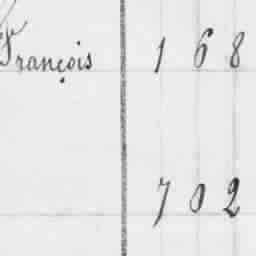 François 168
702